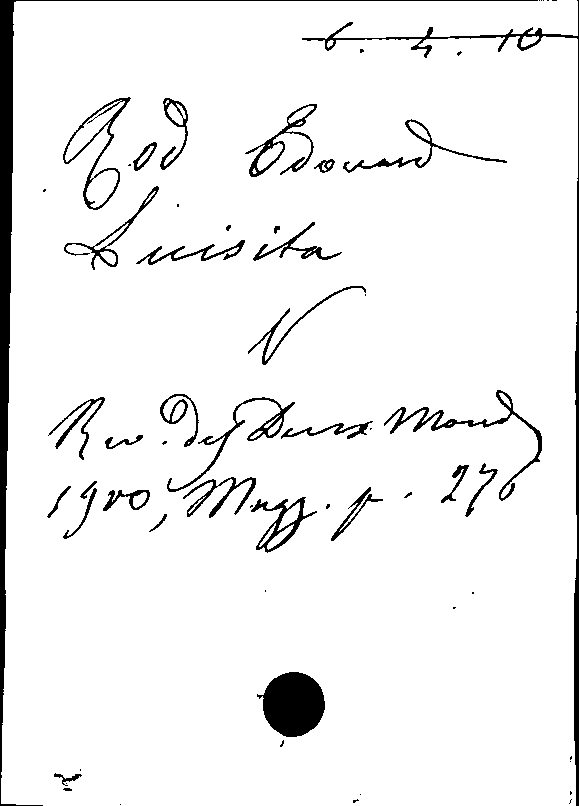 6. 4. 10
Rod Edouard
Luisita
N
Rev. des Deux Mond
1900, Magg. p. 276